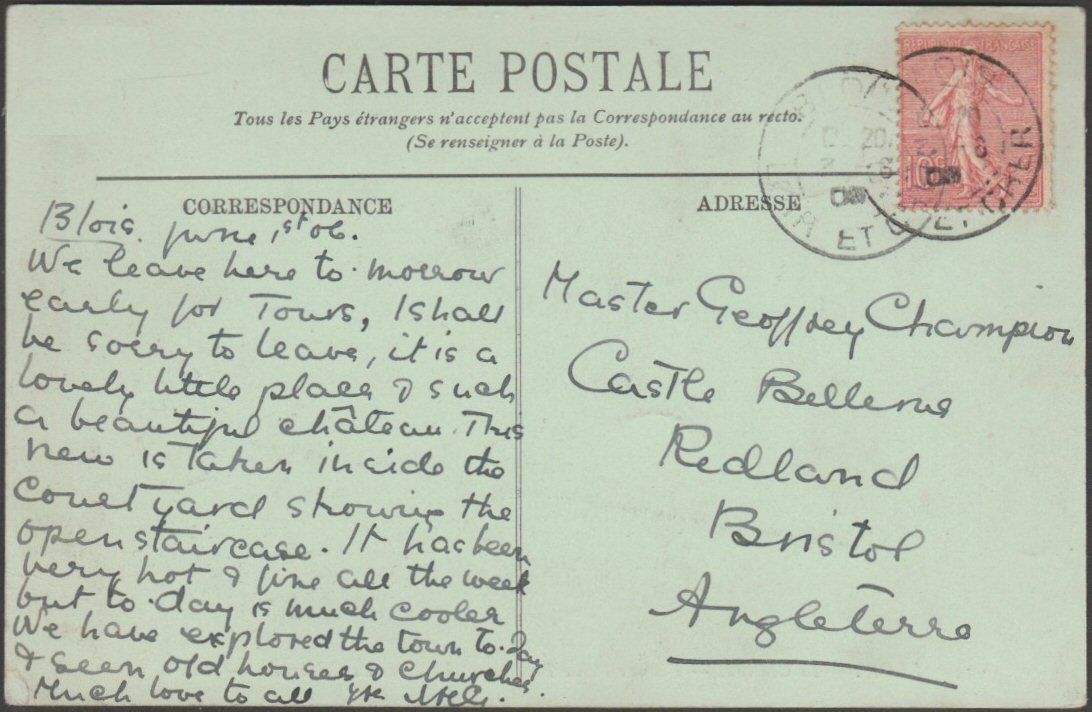 CARTE POSTALE
Tous les Pays étrangers n'acceptent pas la Correspondance au recto.
(Se renseigner à la Poste).
CORRESPONDANCE
Blois. June 1st 06.
We leave here to-morrow
early for Tours, I shall
be sorry to leave, it is a
lovely little place & such
a beautiful château. This
view is taken inside the
courtyard showing the
open staircase. It has been
very hot & fine all the week
but to-day is much cooler
We have explored the town to-day
& seen old houses & churches.
Much love to all
ADRESSE
Master Geoffrey Champion
Castle Bellevue
Redland
Bristol
Angleterre
REPUBLIQUE FRANÇAISE
10c
BLOIS
LOIR ET CHER